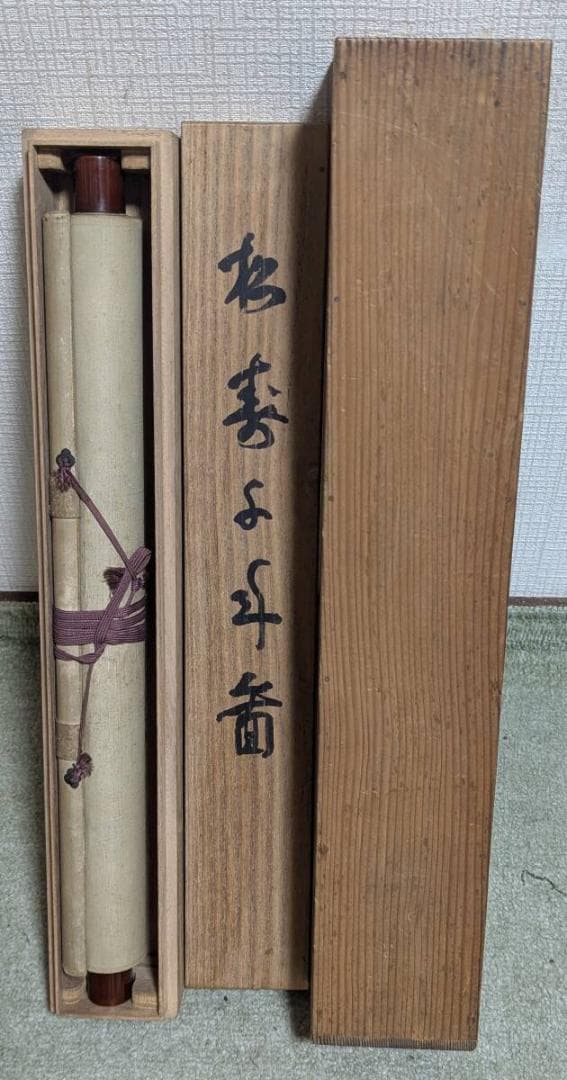 松寿千年図